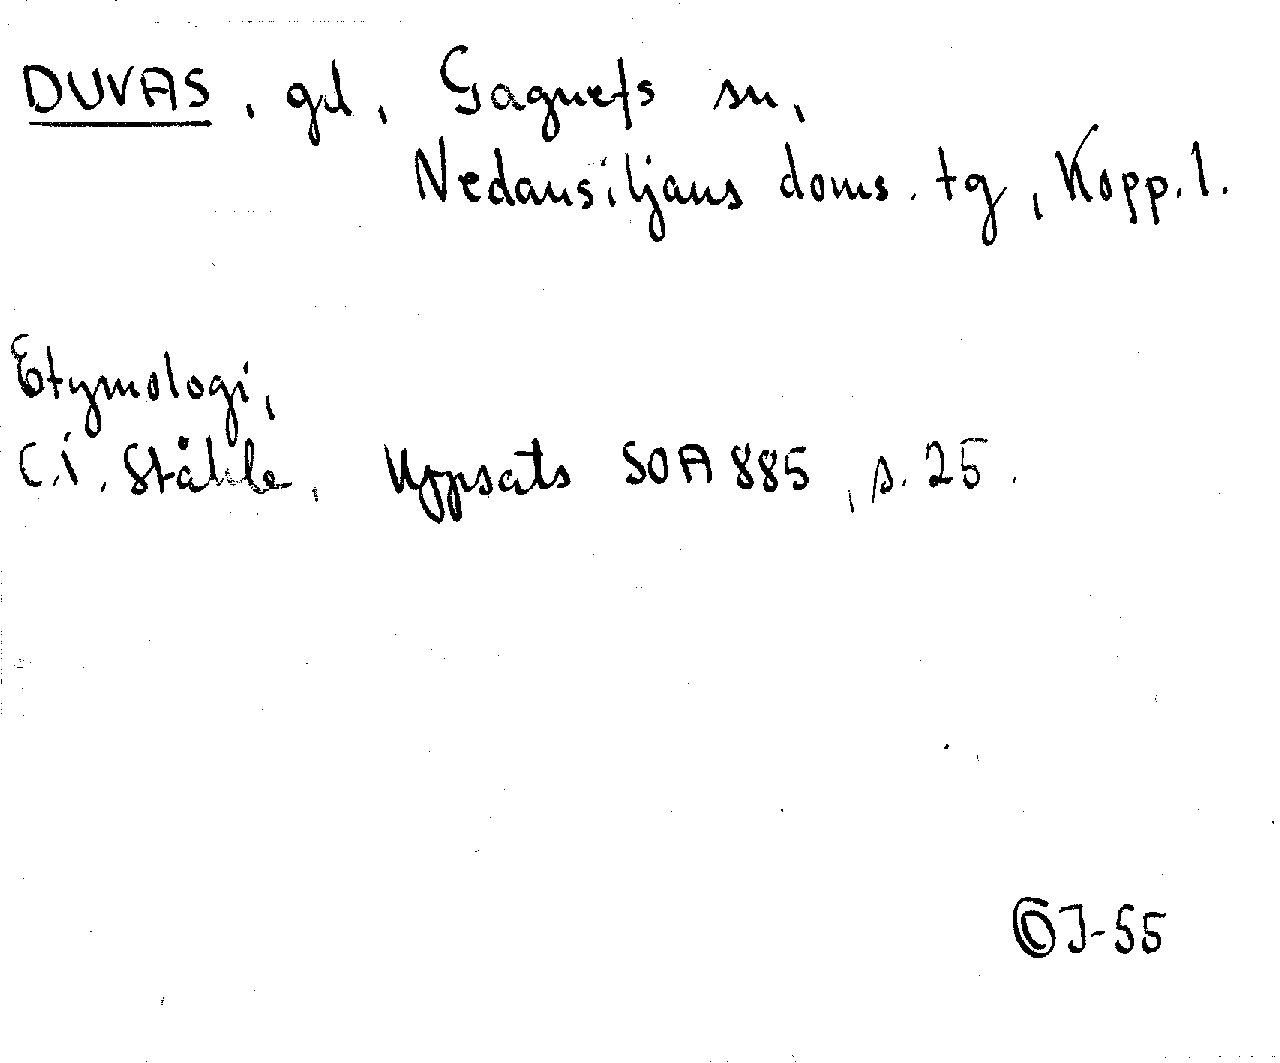 DUVAS, gd, Gagnefs sn,
Nedansiljans doms. tg, Kopp. l.
Etymologi,
C.I. Ståhle, Uppsats SOA 885, s. 25.
©J-55